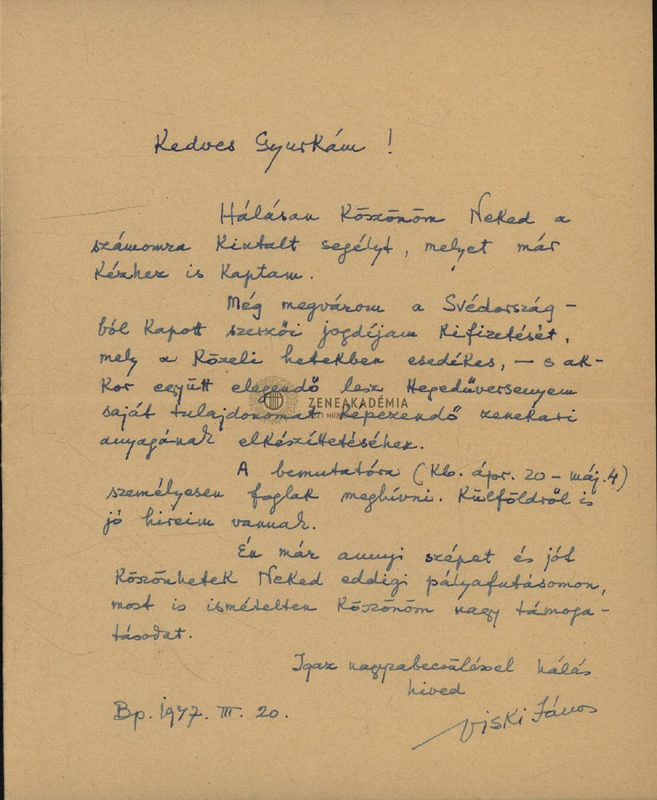 Kedves Gyurkám!
Hálásan köszönöm Neked a
számomra kiutalt segélyt, melyet már
kézhez is kaptam.
Még megvárom a Svédország-
ból kapott szerzői jogdíjam kifizetését,
mely a közeli hetekben esedékes, – s ak-
kor együtt elegendő lesz Hegedűversenyem
ZENEAKADÉMIA
saját tulajdonomat képezendő zenekari
anyagának elkészíttetéséhez.
A bemutatóra (kb. ápr. 20 – máj. 4)
személyesen foglak meghívni. Külföldről is
jó hireim vannak.
Én már annyi szépet és jót
köszönhetek Neked eddigi pályafutásomon,
most is ismételten köszönöm nagy támoga-
tásodat.
Igaz nagyrabecsüléssel hálás
hived
Bp. 1947. III. 20.
Viski János